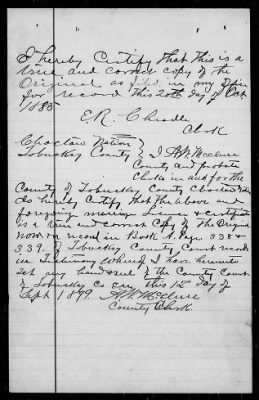 I hereby Certify that this is a
true and correct copy of the
Original as filed in my Office
for record this 20th day of Oct
1885
E.R. Cheadle
Clerk
Choctaw Nation }
Tobucksy County } I A.W. McClure
County and probate
Clerk in and for the
County of Tobucksy County Choctaw Nation
do hereby Certify that the above and
foregoing marriage License & certificate
is a true and correct Copy of the Original
now on record in Book A. Page 338 &
339. of Tobucksy County Court records
in Testimony Whereof I have hereunto
set my hand & seal of the County Court
of Tobucksy Co on this 12th day of
Sept 1899. A.W. McClure
County Clerk.